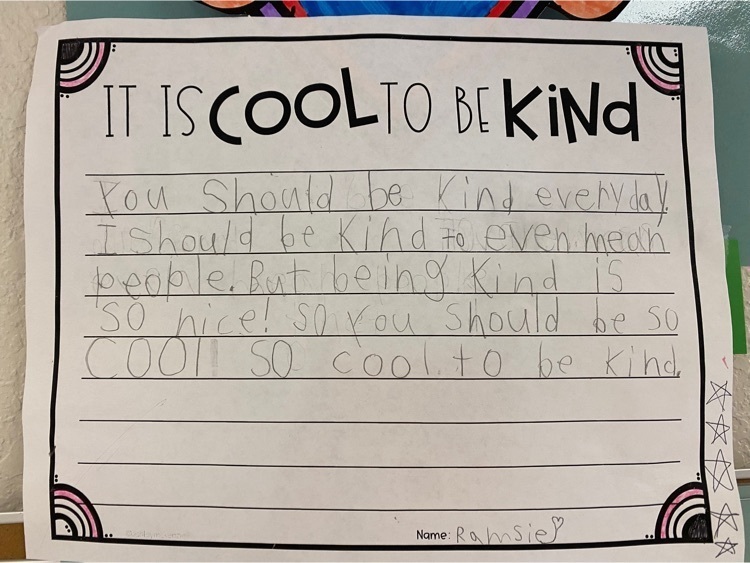 IT IS COOL TO BE KiNd
You Should be Kind everyday.
I should be Kind to even mean
people. But being Kind is
SO nice! So you should be so
COOl SO cool to be kind.
Name: Ramsie